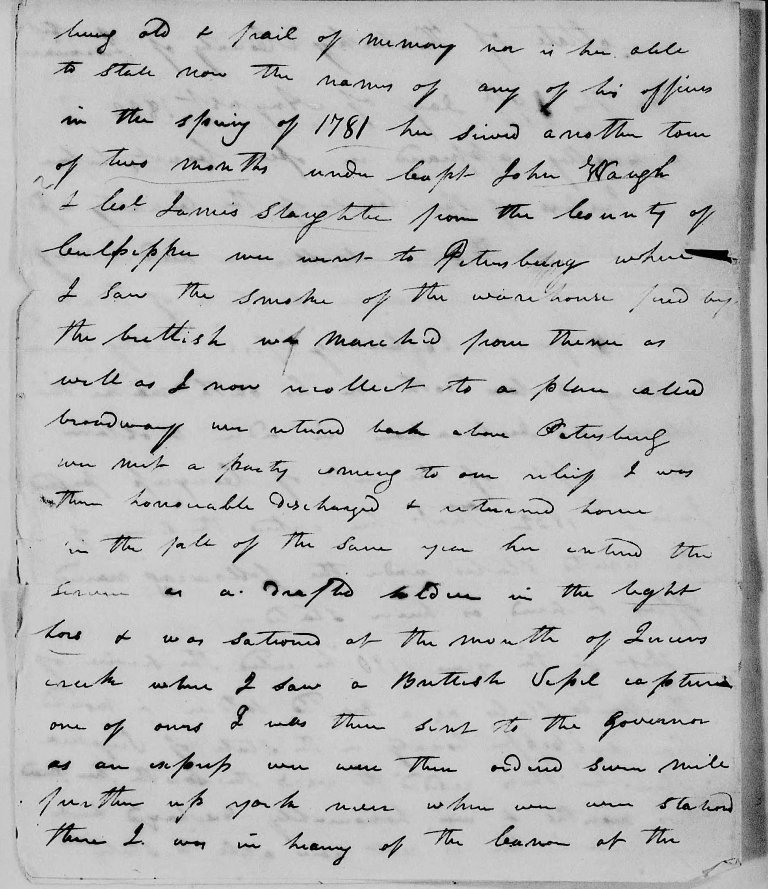 being old & frail of memory nor is her able
to state now the names of any of his officers
in the spring of 1781 her sirved another tour
of two months under Capt John Waugh
& Col. James Slaughter from the County of
Culpepper wee went to Petersburg where
I saw the smoke of the warehouse fired by
the brittish we marched from thence as
well as I now recollect to a place called
broadway wee returned back above Petersburg
wee met a party coming to our relief I was
then honourable discharged & returned home
in the fale of the same year her entered the
service as a drafted soldier in the light
hors & was sationed at the mouth of Queens
creek where I saw a Brittish Vessel capture
one of ours I was then sent to the Governor
as an express wee were then ordered seven mile
further up york river where wee were stationd
there I was in hearing of the Canon at the